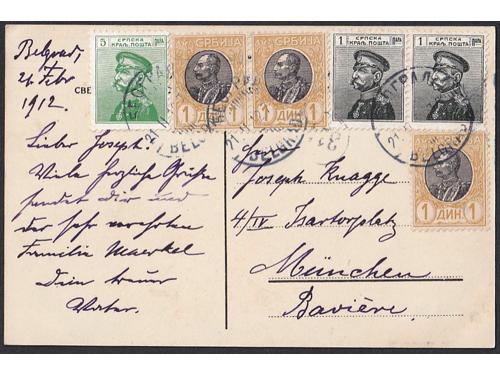 Belgrad,
26 Febr
1912.
СВЕ
5 СРПСКА ПАРА
КРАЉ. ПОШТА
СРБИЈА
1 ДИН 1
СРБИЈА
1 ДИН 1
1 СРПСКА ПАРА
КРАЉ. ПОШТА
1 СРПСКА ПАРА
КРАЉ. ПОШТА
1 ДИН 1
BELGRADE
Lieber Joseph!
Viele herzliche Grüße
sendet dir und
der sehr verehrten
Familie Maerkel
Dein treuer
Vater.
Herrn
Joseph Knagge
4/IV Isartorplatz
München
Bavière.